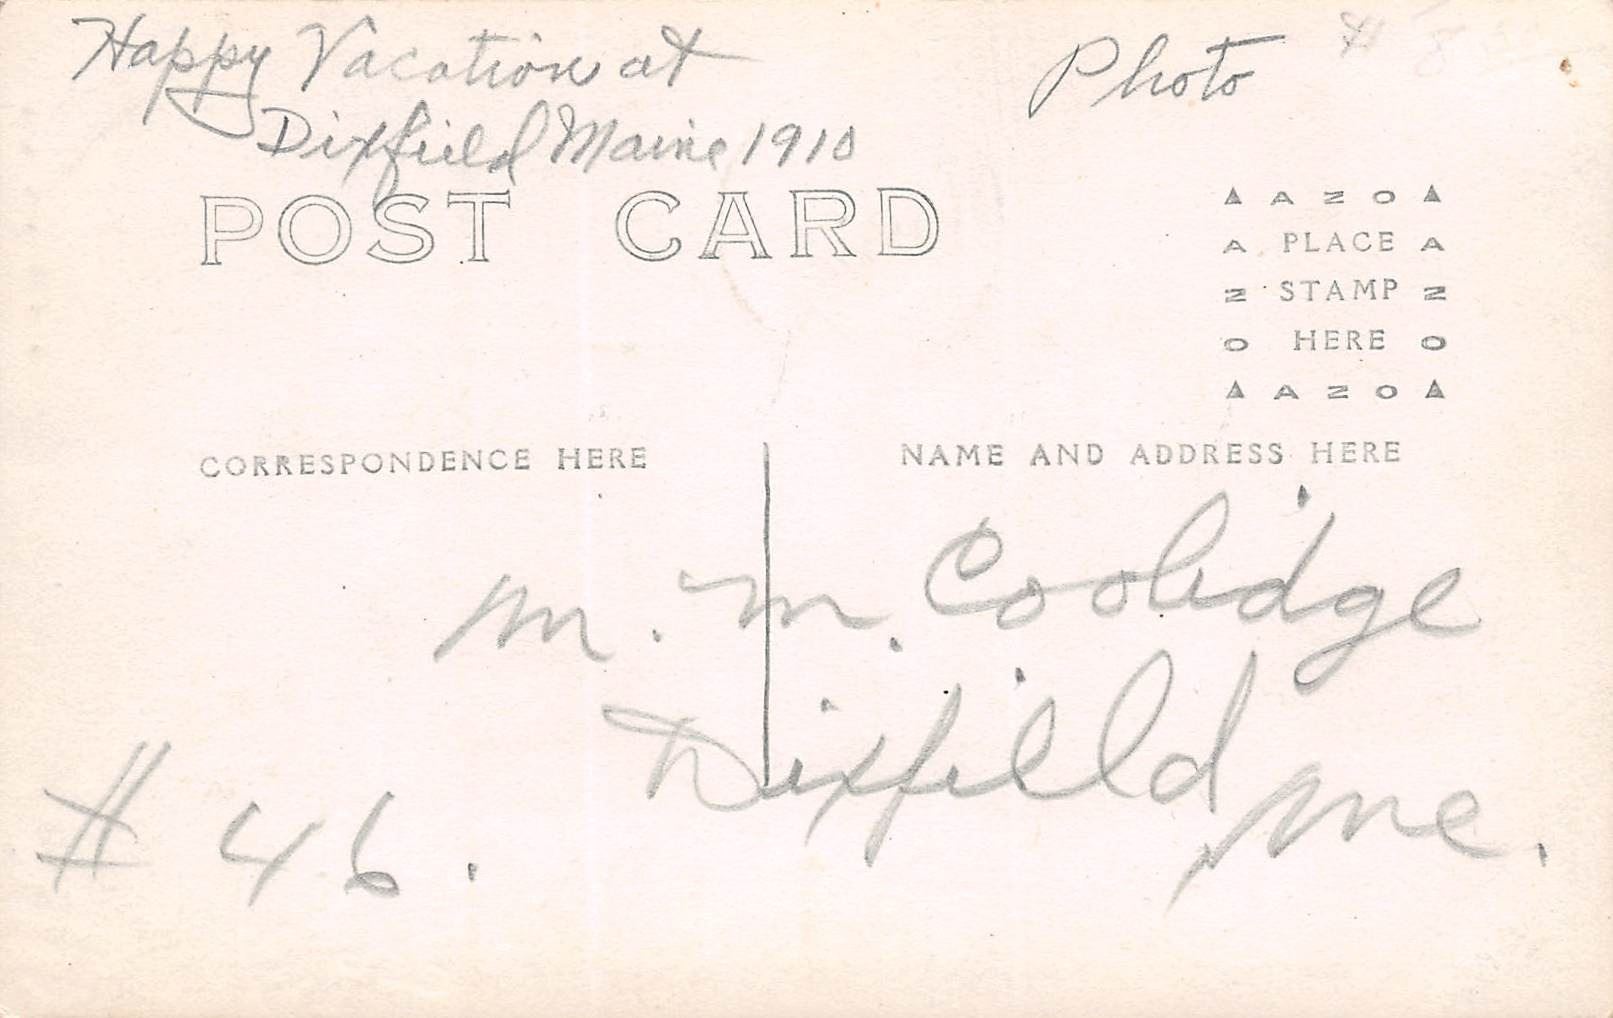 Happy Vacation at
Dixfield Maine 1910
Photo
POST CARD
▲ AZO ▲
A PLACE A
N STAMP N
O HERE O
▲ AZO ▲
CORRESPONDENCE HERE
NAME AND ADDRESS HERE
M. M. Coolidge
Dixfield Me.
# 46.